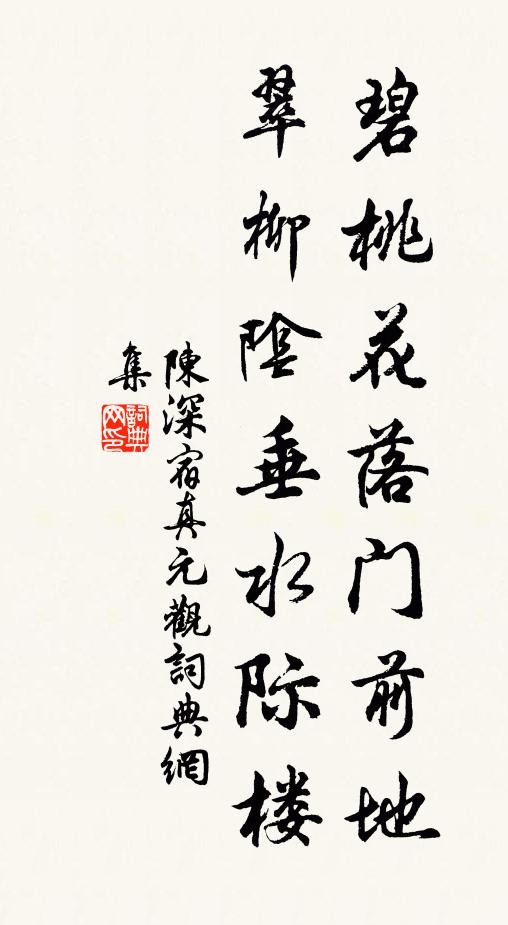 碧桃花落门前地
翠柳陰垂水际楼
陳深宿真元觀詞典網
集
詞典网印